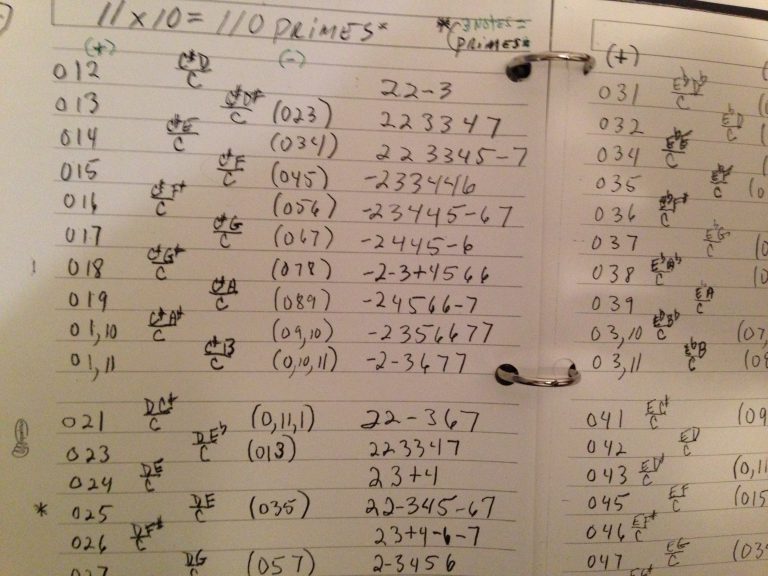 11 x 10 = 110 PRIMES*
*(-3 NOTES =
(PRIMES*
(+) (-)
012 C#D/C 22-3
013 C#D#/C (023) 223347
014 C#E/C (034) 223345-7
015 C#F/C (045) -233446
016 C#F#/C (056) -23445-67
017 C#G/C (067) -2445-6
018 C#G#/C (078) -2-3+4566
019 C#A/C (089) -24566-7
01,10 C#A#/C (09,10) -2356677
01,11 C#B/C (0,10,11) -2-3677
021 DC#/C (0,11,1) 22-367
023 DEb/C (013) 223347
024 DE/C 23+4
* 025 DE/C (035) 22-345-67
026 DF#/C 23+4-6-7
027 DG/C (057) 2-3456
(+)
031 EbDb/C
032 EbD/C
034 EbE/C
035 EbF/C
036 EbF#/C
037 EbG/C
038 EbAb/C
039 EbA/C
03,10 EbBb/C (07,
03,11 EbB/C (08
041 EC#/C (09
042 ED/C
043 ED#/C (0,11
045 EF/C (015
046 EF#/C
047 EG/C (03